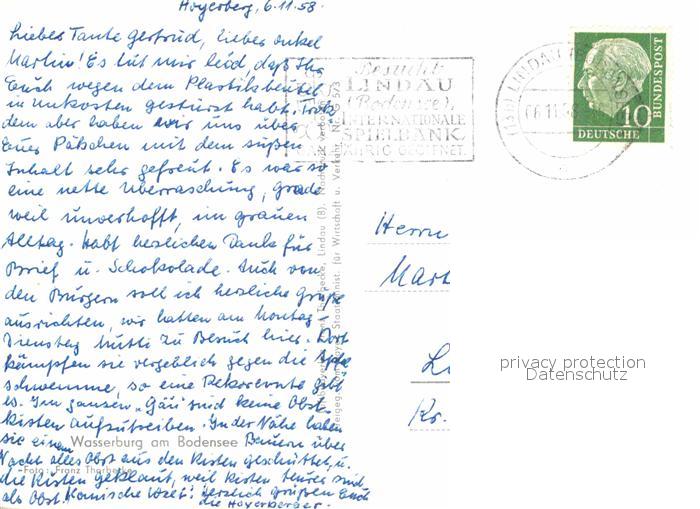 Hoyerberg, 6.11.58.
Liebe Tante Gertrud, lieber Onkel
Martin! Es tut mir leid, daß Ihr
Euch wegen dem Plastikbeutel
in Unkosten gestürzt habt. Trotz-
dem aber haben wir uns über
Euer Päckchen mit dem süßen
Inhalt sehr gefreut. Es war so
eine nette Überraschung, grade
weil unverhofft, im grauen
Alltag. Habt herzlichen Dank für
Brief u. Schokolade. Auch von
den Bürgern soll ich herzliche Grüße
ausrichten, wir hatten am Montag-
Dienstag Mutti zu Besuch hier. Dort
kämpfen sie vergeblich gegen die
schwemme, so eine Rekordernte gibt
es. Im ganzen "Gäu" sind keine Obst-
kisten aufzutreiben. In der Nähe haben
sie einem Bauern über
Wasserburg am Bodensee
Nacht alles Obst aus den Kisten geschüttet, u.
Foto: Franz Thorbecke
die Kisten geklaut, weil Kisten teurer sind
als Obst. Komische Welt! Herzlich grüßen Euch
die Hoyerberger.
Besucht:
LINDAU
(Bodensee),
INTERNATIONALE
SPIELBANK,
GEÖFFNET.
LINDAU
06.11.58
10
DEUTSCHE
BUNDESPOST
Herrn
Mart
Li
Kr.
privacy protection
Datenschutz